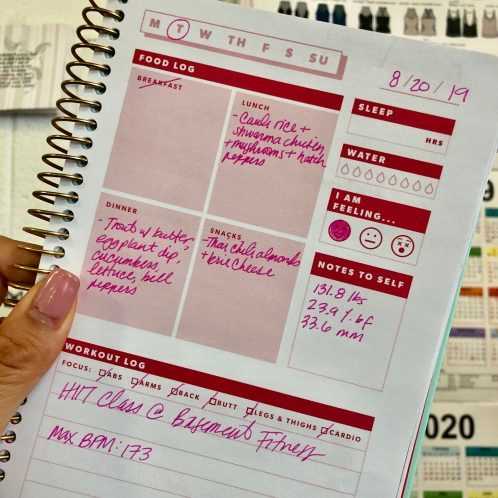 M T W TH F S SU
8/20/19
FOOD LOG
BREAKFAST
LUNCH
- Cauli rice +
shwarma chicken
+ mushrooms + hatch
peppers
DINNER
- Trout w/ butter,
eggplant dip,
cucumbers,
lettuce, bell
peppers
SNACKS
- Thai chili almonds
+ brie cheese
SLEEP
HRS
WATER
I AM
FEELING...
NOTES TO SELF
131.8 lbs
23.9% bf
33.6 mm
WORKOUT LOG
FOCUS: ABS ARMS BACK BUTT LEGS & THIGHS CARDIO
HIIT Class @ Basement Fitness
Max BPM: 173
2020